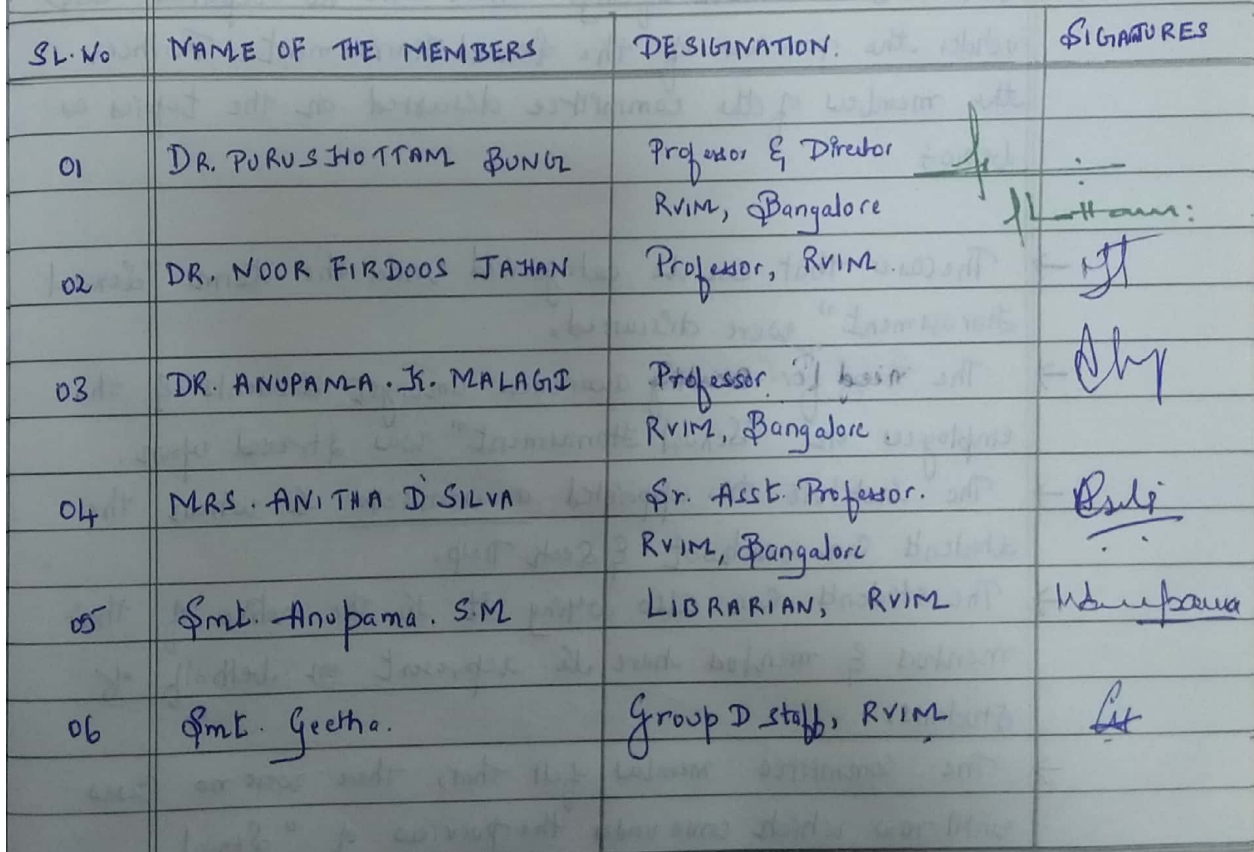 SL.No NAME OF THE MEMBERS DESIGINATION. SIGATURES
01 DR. PURUSHOTTAM BUNG Professor & Director
RVIM, Bangalore
02 DR. NOOR FIRDOOS JAHAN Professor, RVIM.
03 DR. ANUPAMA. K. MALAGI Professor
RVIM, Bangalore
04 MRS. ANITHA D'SILVA Sr. Asst. Professor.
RVIM, Bangalore
05 Smt. Anupama. S.M LIBRARIAN, RVIM
06 Smt. Geetha. Group D staff, RVIM